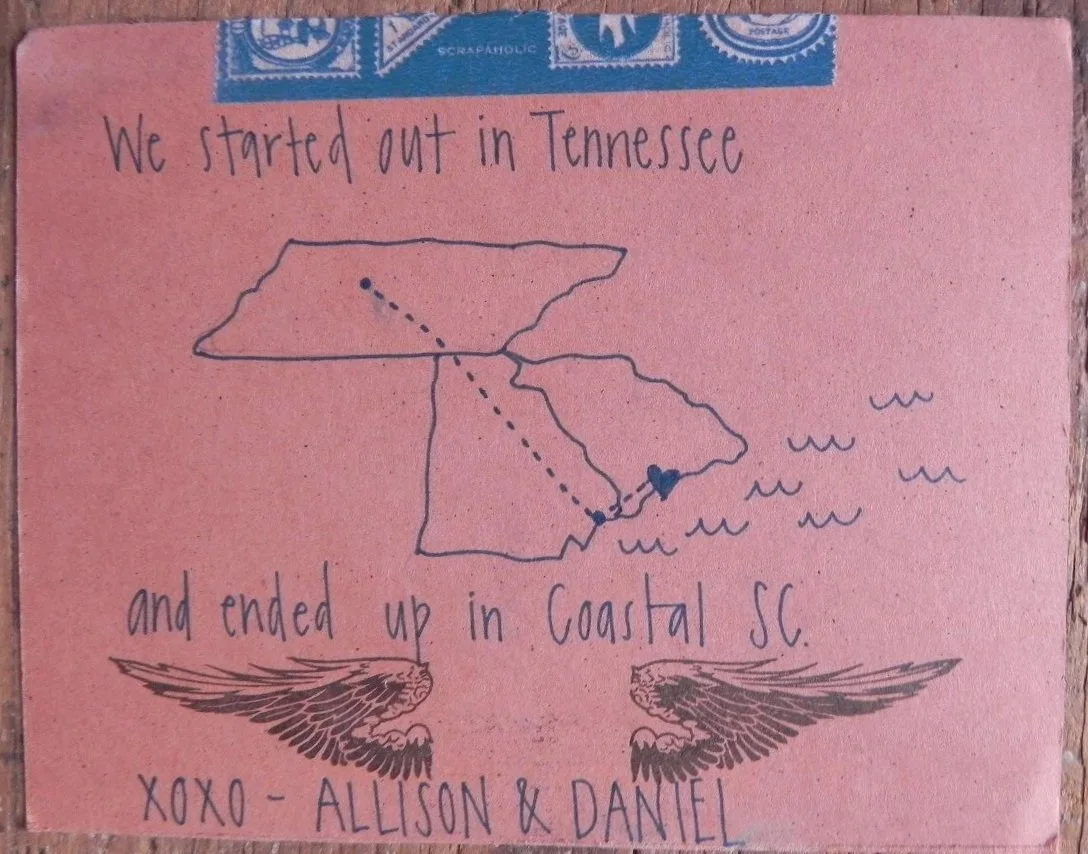 SCRAPAHOLIC
POSTAGE
We started out in Tennessee
and ended up in Coastal SC.
XOXO - ALLISON & DANIEL